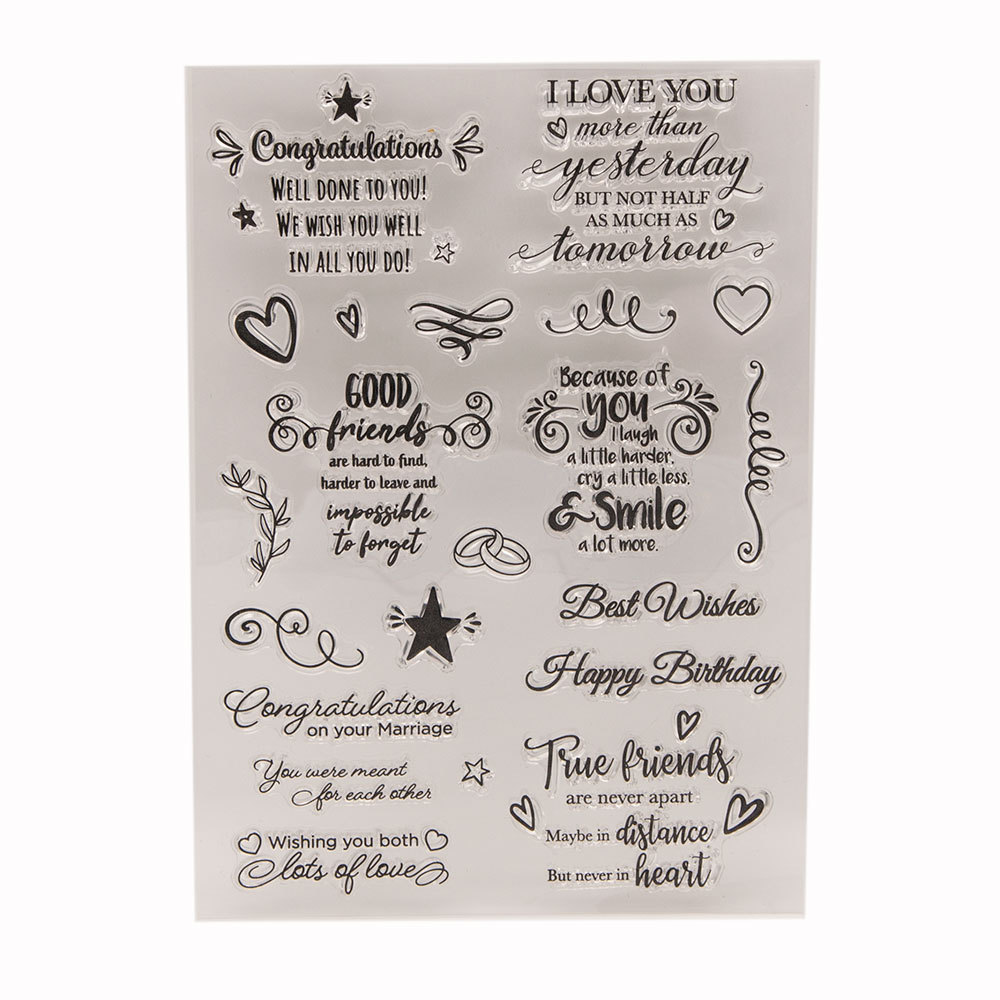 Congratulations
WELL DONE TO YOU!
WE WISH YOU WELL
IN ALL YOU DO!
I LOVE YOU
more than
yesterday
BUT NOT HALF
AS MUCH AS
tomorrow
GOOD
friends
are hard to find,
harder to leave and
impossible
to forget
Because of
you
I laugh
a little harder,
cry a little less,
& Smile
a lot more.
Best Wishes
Happy Birthday
Congratulations
on your Marriage
You were meant
for each other
Wishing you both
lots of love
True friends
are never apart
Maybe in distance
But never in heart